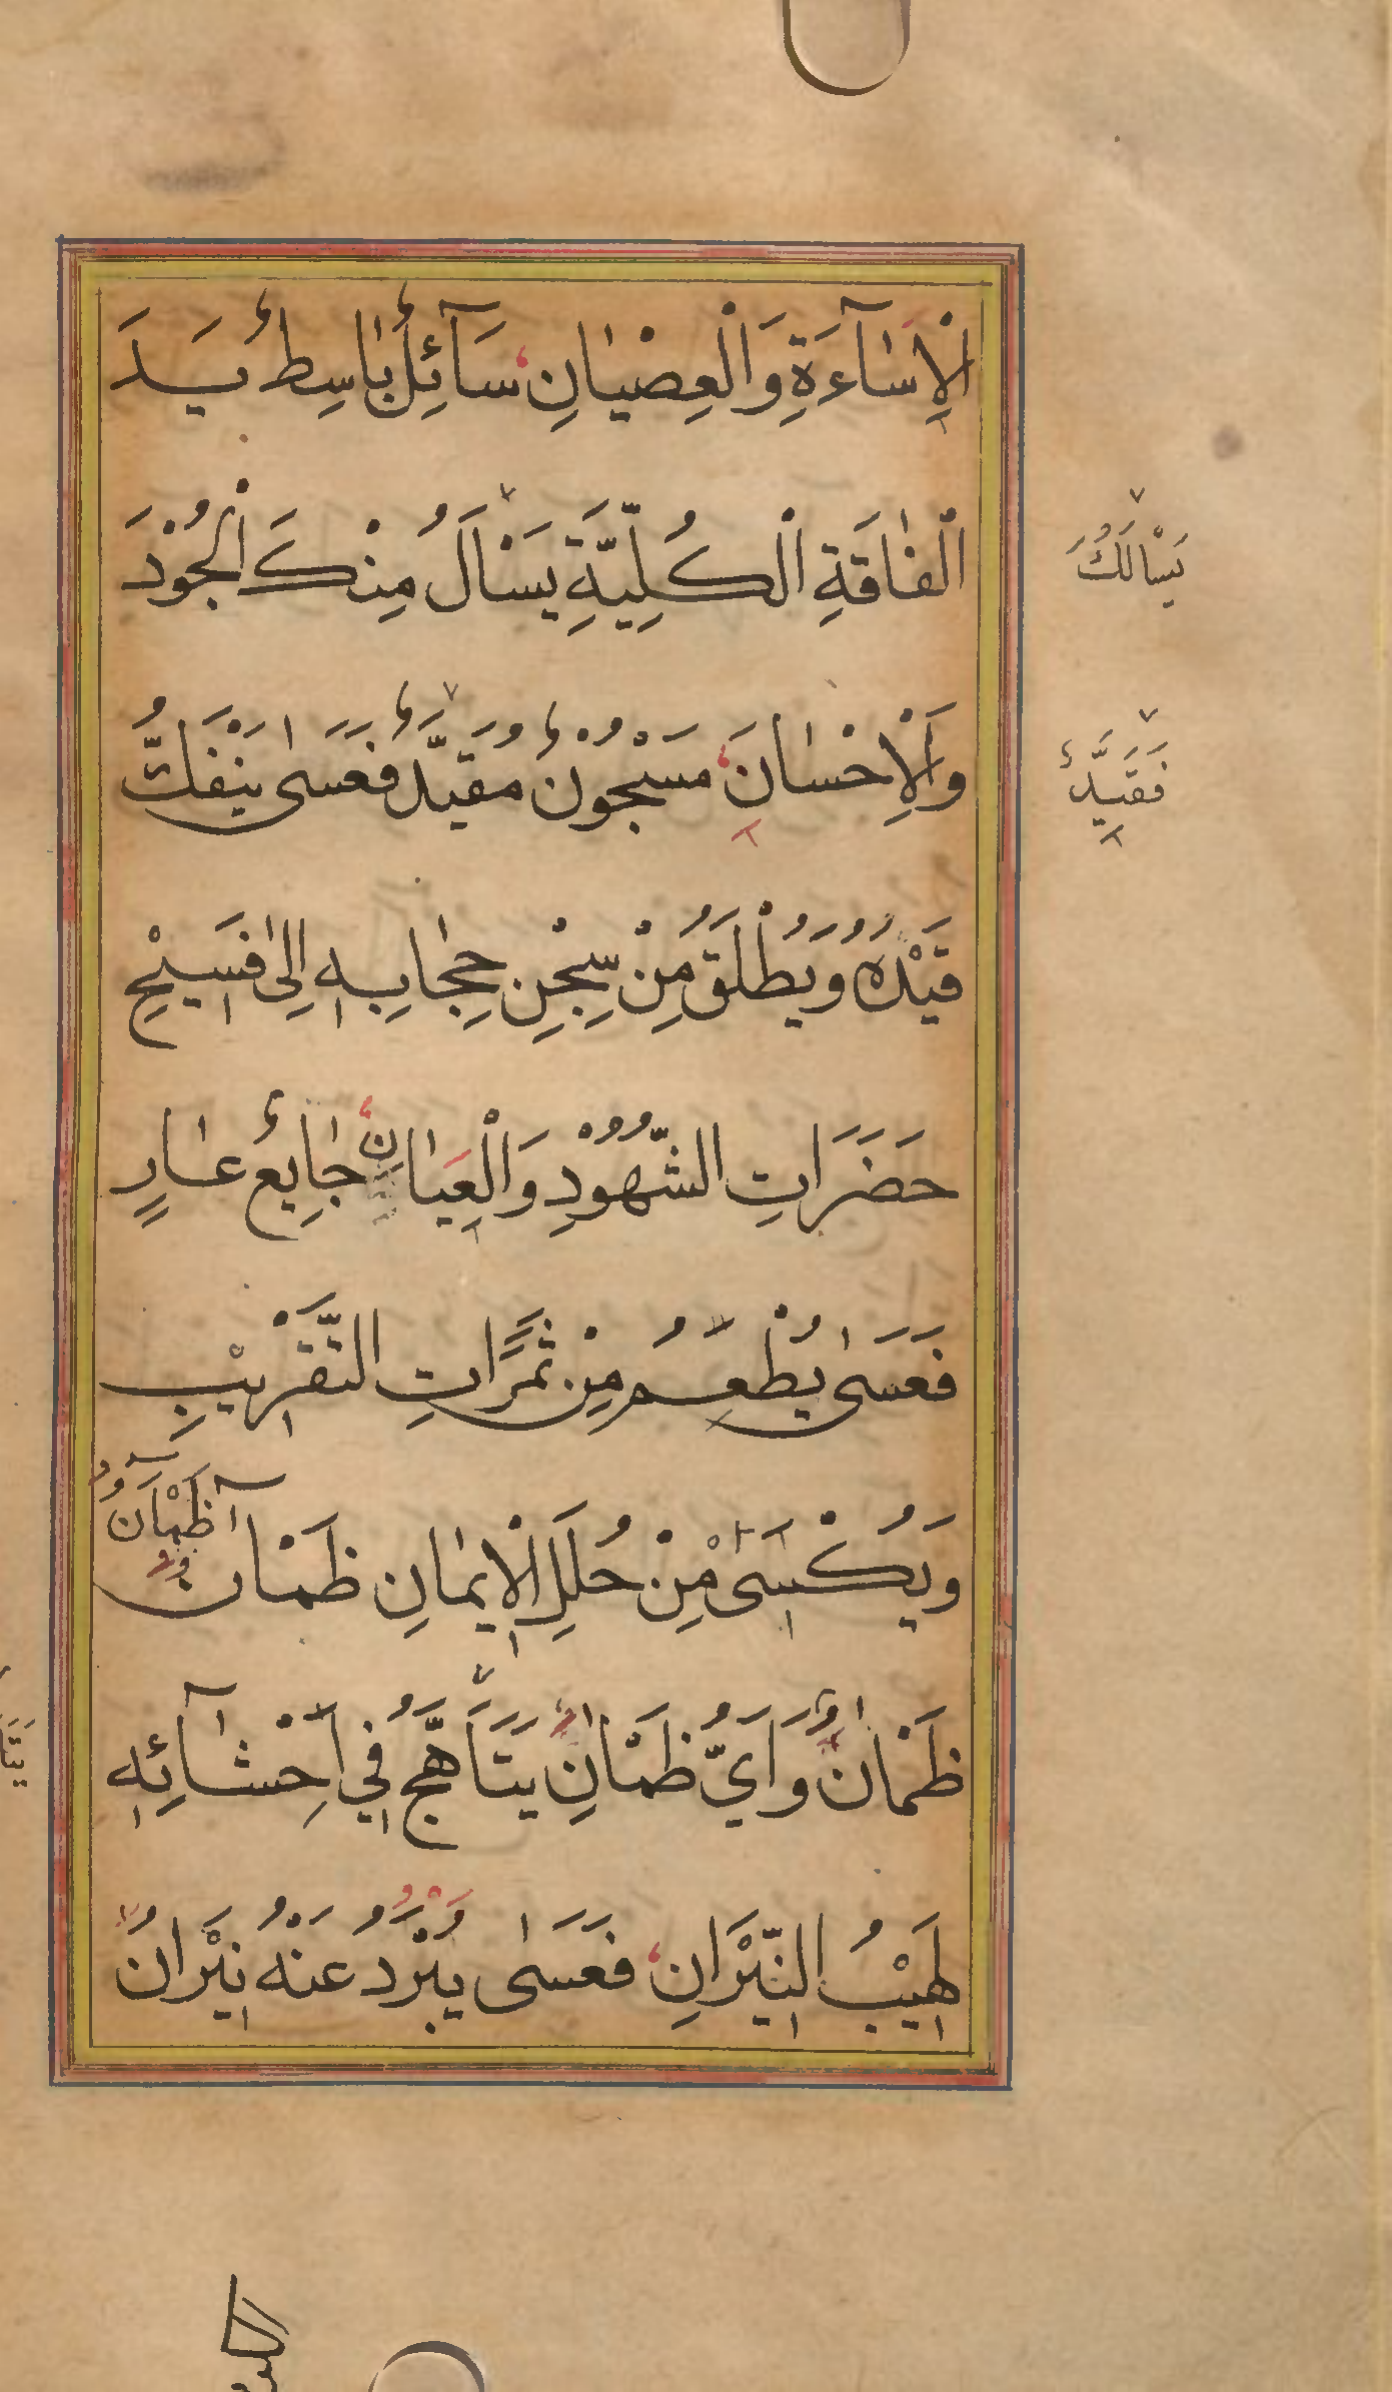 الْاِسَآءَةِ وَالْعِصْيَانِ سَآئِلٌ بَاسِطٌ يَدَ
الْفَاقَةِ الْكُلِّيَّةِ يَسْاَلُ مِنْكَ الْجُوْدَ
يَسْاَلُكَ
وَالْاِحْسَانَ مَسْجُوْنٌ مُقَيَّدٌ فَعَسَى يَنْفَكُّ
فَقَيِّدٌ
قَيْدُهُ وَيُطْلَقُ مِنْ سِجْنِ حِجَابِهِ اِلَى فَسِيْحِ
حَضَرَاتِ الشُّهُوْدِ وَالْعِيَانِ جَايِعٌ عَارٍ
فَعَسَى يُطْعَمُ مِنْ ثَمَرَاتِ التَّقْرِيْبِ
وَيُكْسَى مِنْ حُلَلِ الْاِيمَانِ ظَمْاٰنُ
ظَمْآنُ
ظَمْاٰنُ وَاَيُّ ظَمْاٰنٍ يَتَاَجَّجُ فِي اَحْشَآئِهِ
لَهِيْبُ النِّيْرَانِ فَعَسَى يَبْرُدُ عَنْهُ نِيْرَانُ